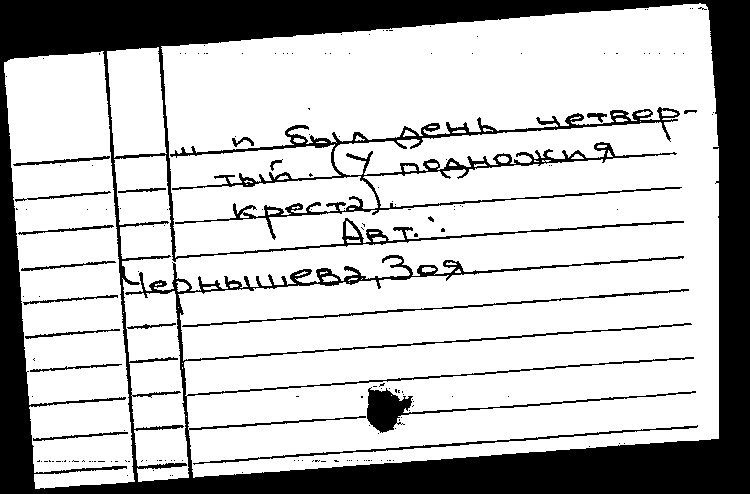 ... и был день четвер-
тый. (У подножия
креста).
Авт.:
Чернышева, Зоя